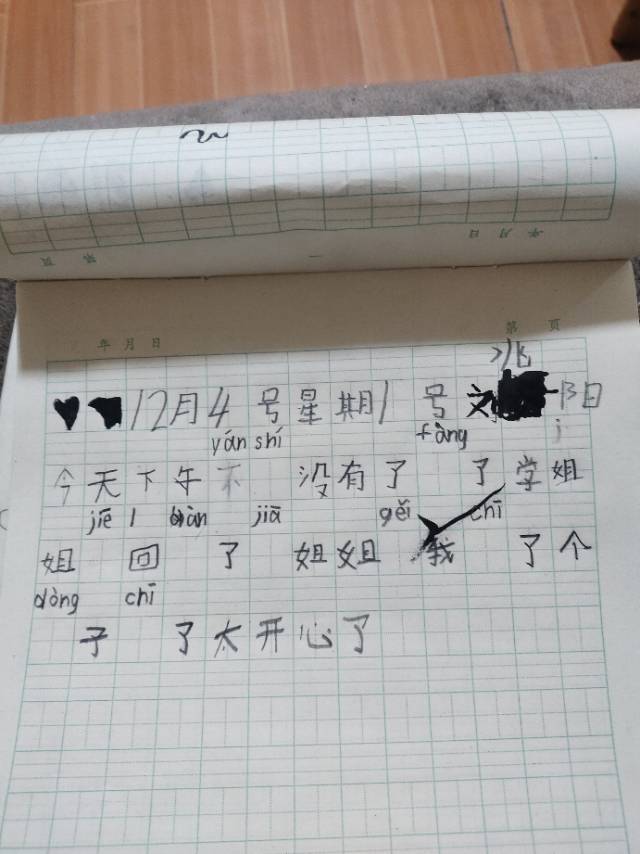 年 月 日
第 页
12月4号星期1号刘 阝日
yán shí fàng
今天下午不 没有了 了学姐
jiē jiā gěi chī
姐 回 了 姐姐 我 了个
dòng chī
子 了太开心了